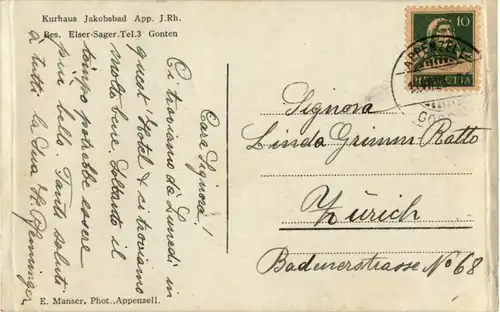 Kurhaus Jakobsbad App. J.Rh.
Bes. Elser-Sager, Tel.3 Gonten
Cara Signora!
Ci troviamo da Lunedi in
quest Hotel & ci troviamo
molto bene. Soltanto il
tempo potrebbe essere
più bello. Tanti saluti
a tutti la Sua H. Pfenninger
E. Manser, Phot., Appenzell.
10
HELVETIA
APPENZELL
GOSS
Signora
Linda Grimm Ratto
Zürich
Badenerstrasse No 68